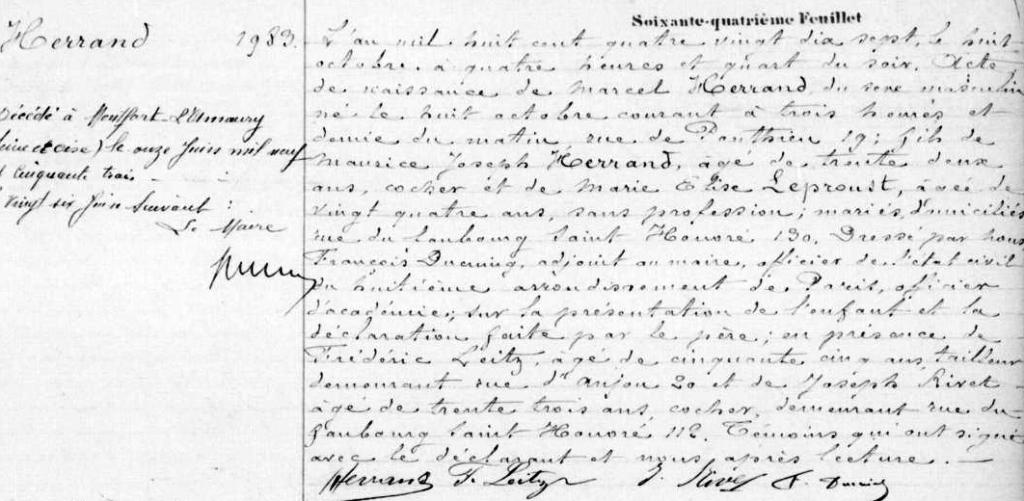 Soixante-quatrième Feuillet
Herrand 1983
Décédé à Montfort L'Amaury
Seine et Oise) le onze Juin mil neuf
cinquante trois
vingt six Juin Suivant :
Le Maire
L'an mil huit cent quatre vingt dix sept, le huit
octobre à quatre heures et quart du soir. Acte
de naissance de Marcel Herrand, du sexe masculin
né le huit octobre courant à trois heures et
demie du matin rue de Penthieu 19; fils de
Maurice Joseph Herrand, âgé de trente deux
ans, cocher et de Marie Elise Leproust, âgée de
vingt quatre ans, sans profession; mariés, domiciliés
rue du Faubourg Saint Honoré 130. Dressé par nous
François Ducuing, adjoint au maire, officier de l'état civil
du huitième arrondissement de Paris, officier
d'académie; sur la présentation de l'enfant et la
déclaration faite par le père; en présence de
Frédéric Leitz, âgé de cinquante cinq ans, tailleur
demeurant rue d'anjou 20 et de Joseph Rivet
âgé de trente trois ans, cocher, demeurant rue du
Faubourg Saint Honoré 112. Témoins qui ont signé
avec le déclarant et nous, après lecture. —
Herrand F. Leitz J. Rivet F. Ducuing